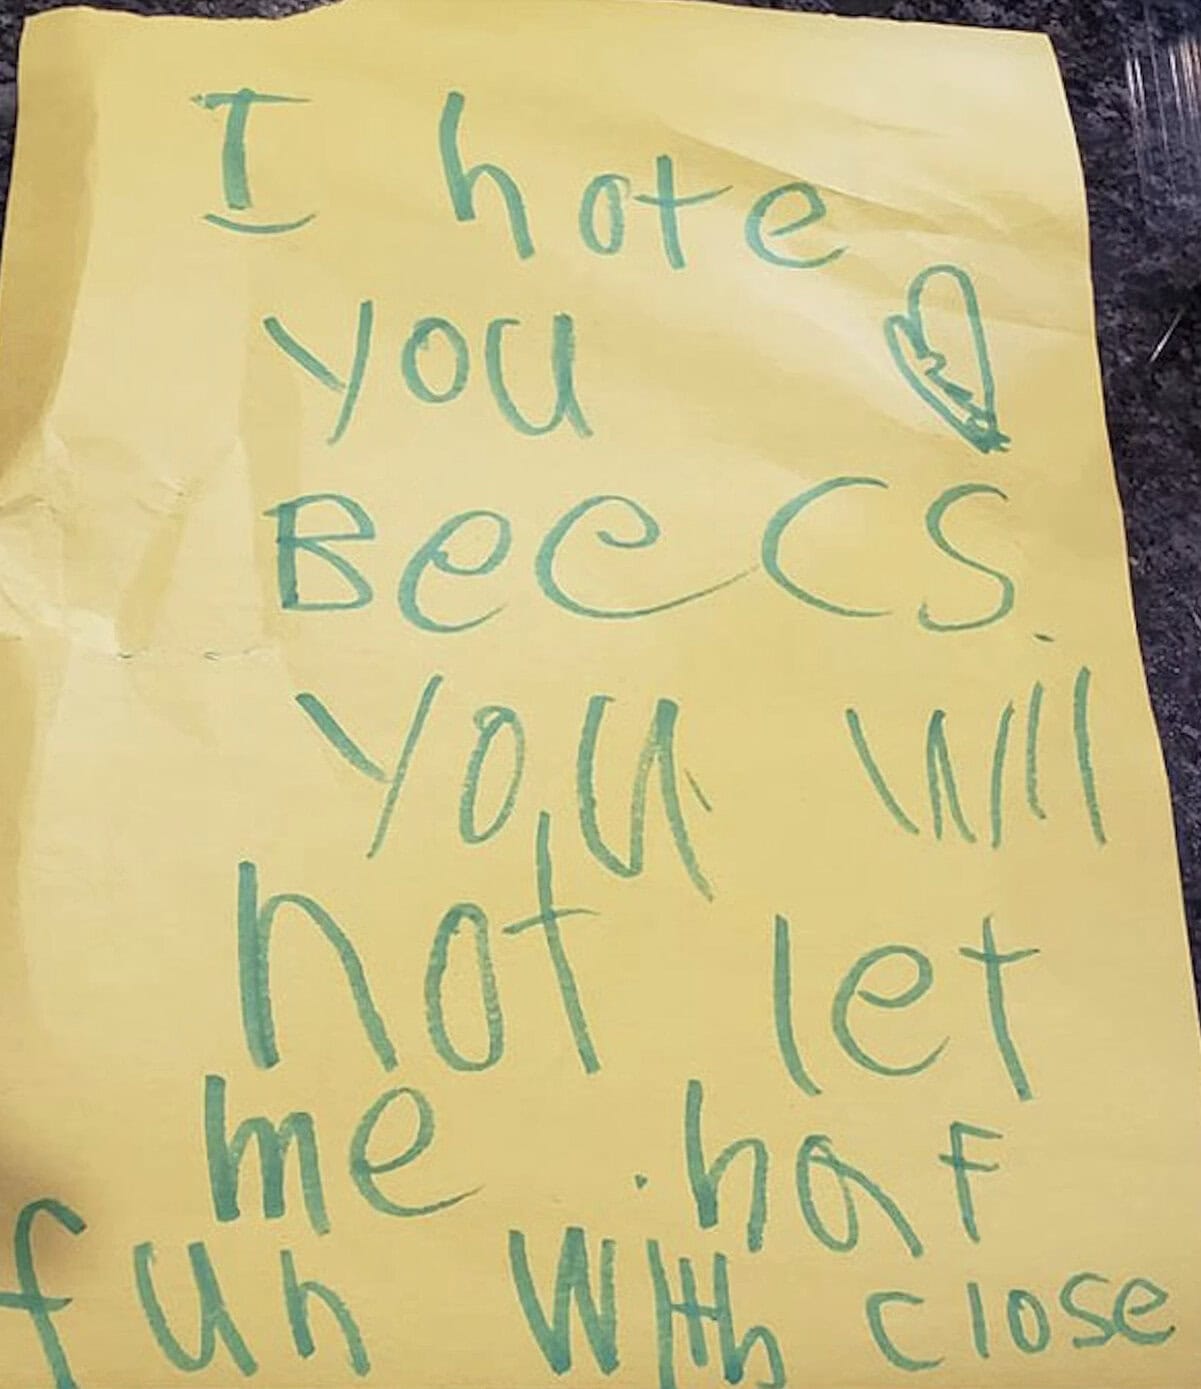 I hate
you
BeeCS.
you will
not let
me haf
fun with close